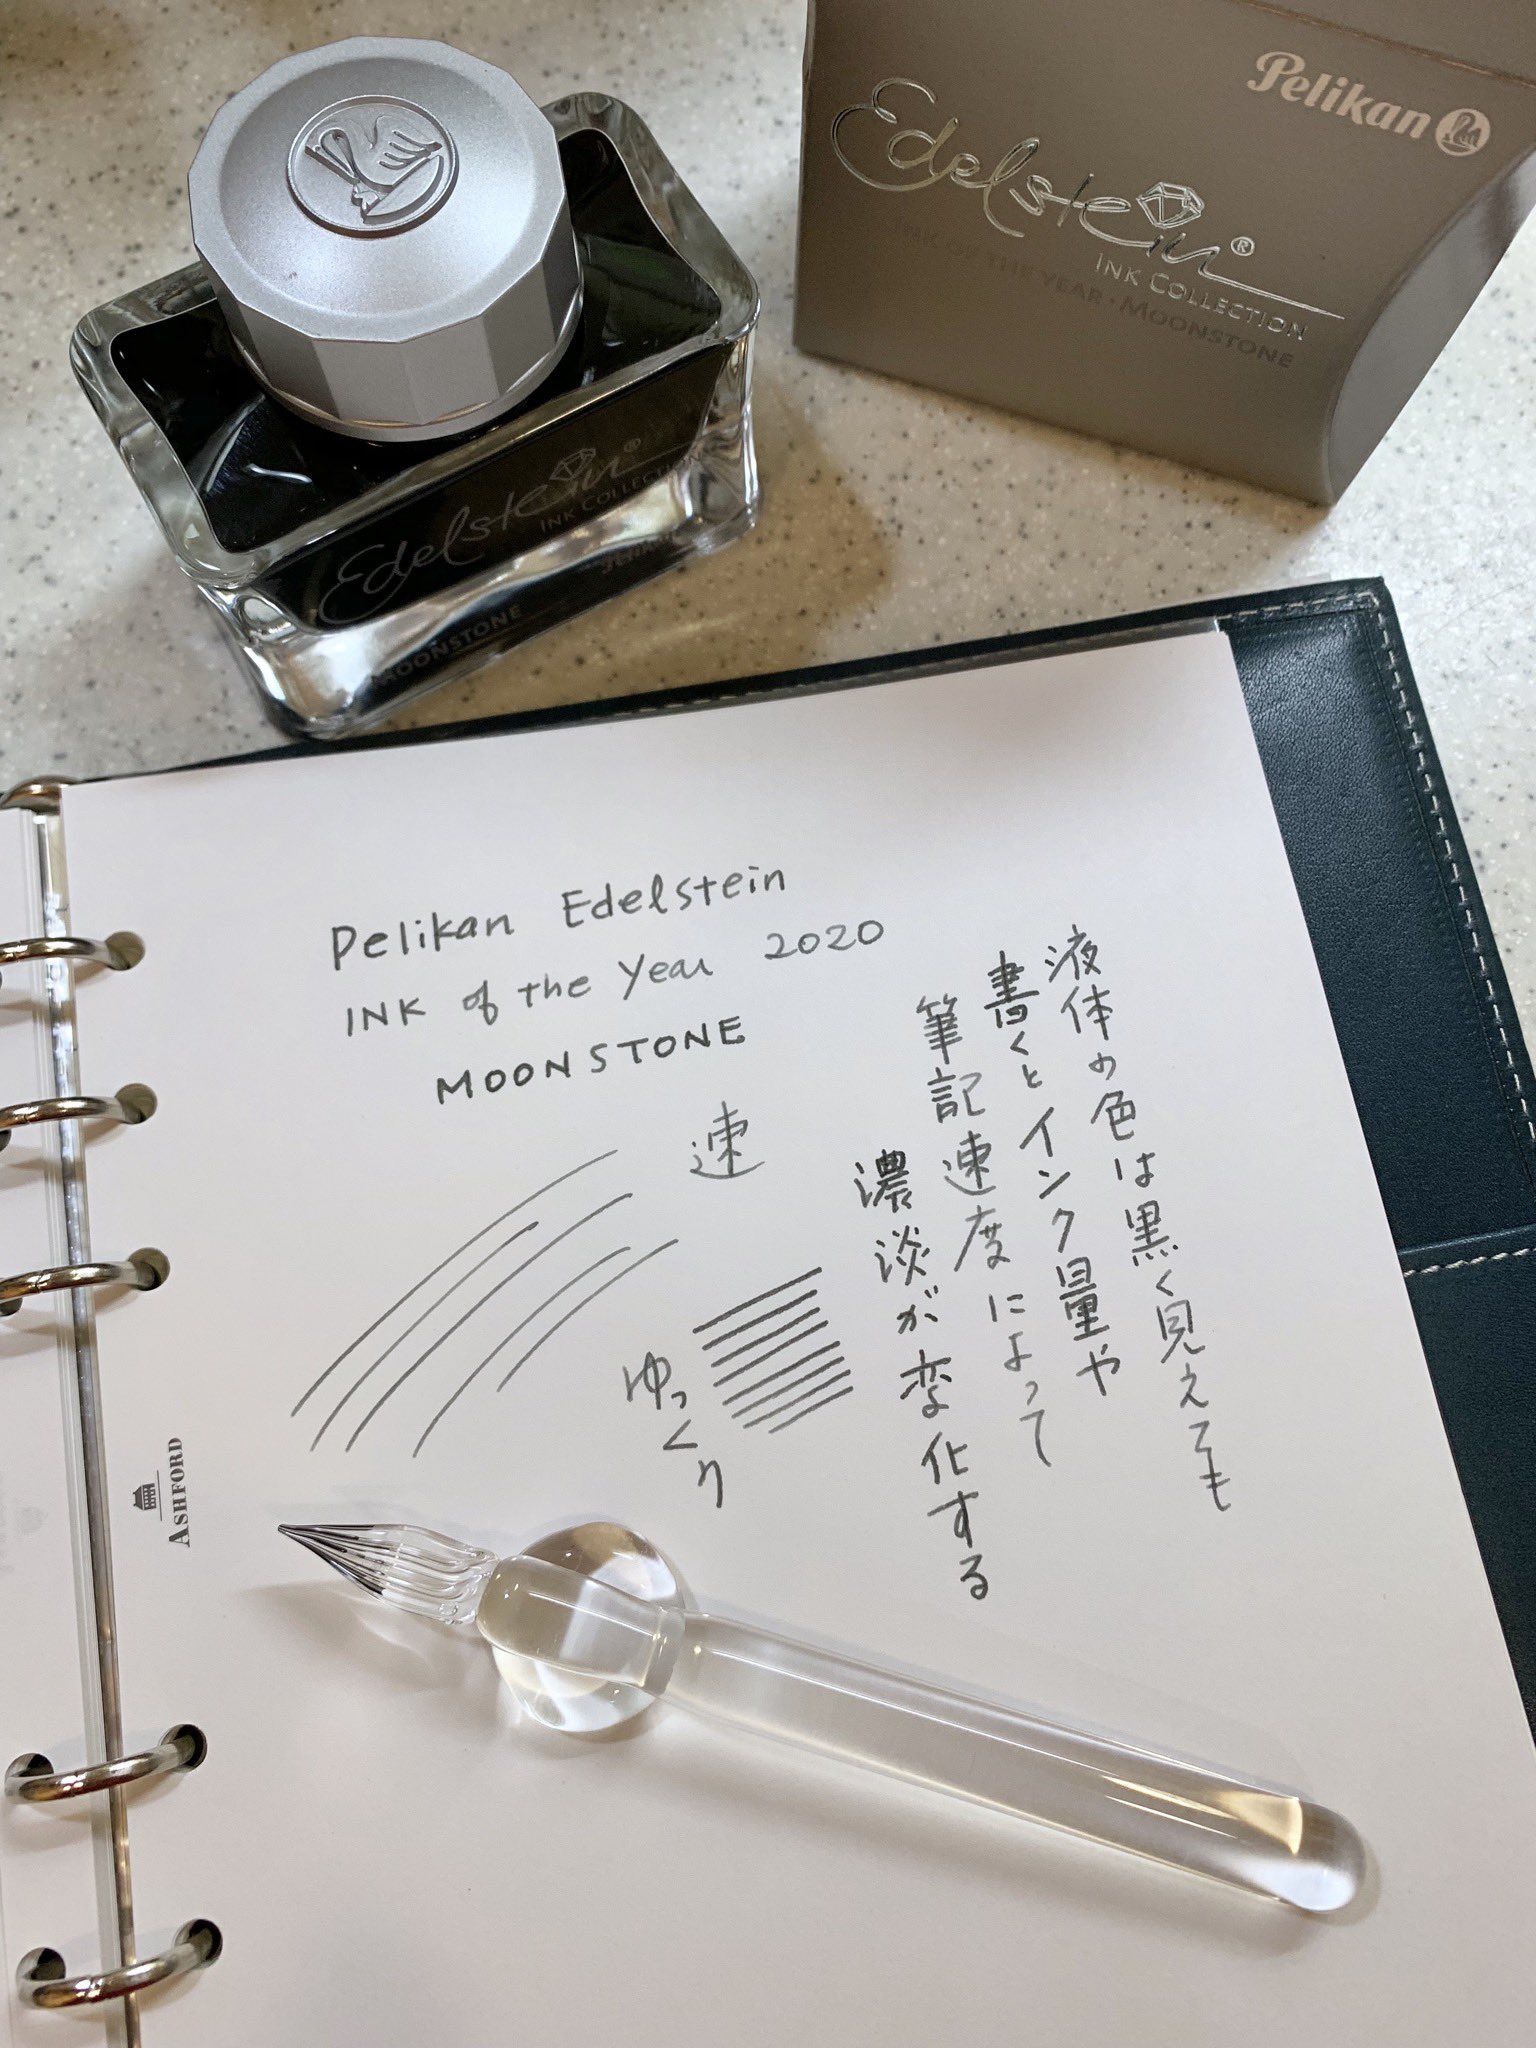 Pelikan
Edelstein®
INK COLLECTION
INK OF THE YEAR · MOONSTONE
Edelstein®
INK COLLECTION
Pelikan
MOONSTONE
Pelikan Edelstein
INK of the Year 2020
MOONSTONE
液体の色は黒く見えても
書くとインク量や
筆記速度によって
濃淡が変化する
速
ゆっくり
ASHFORD